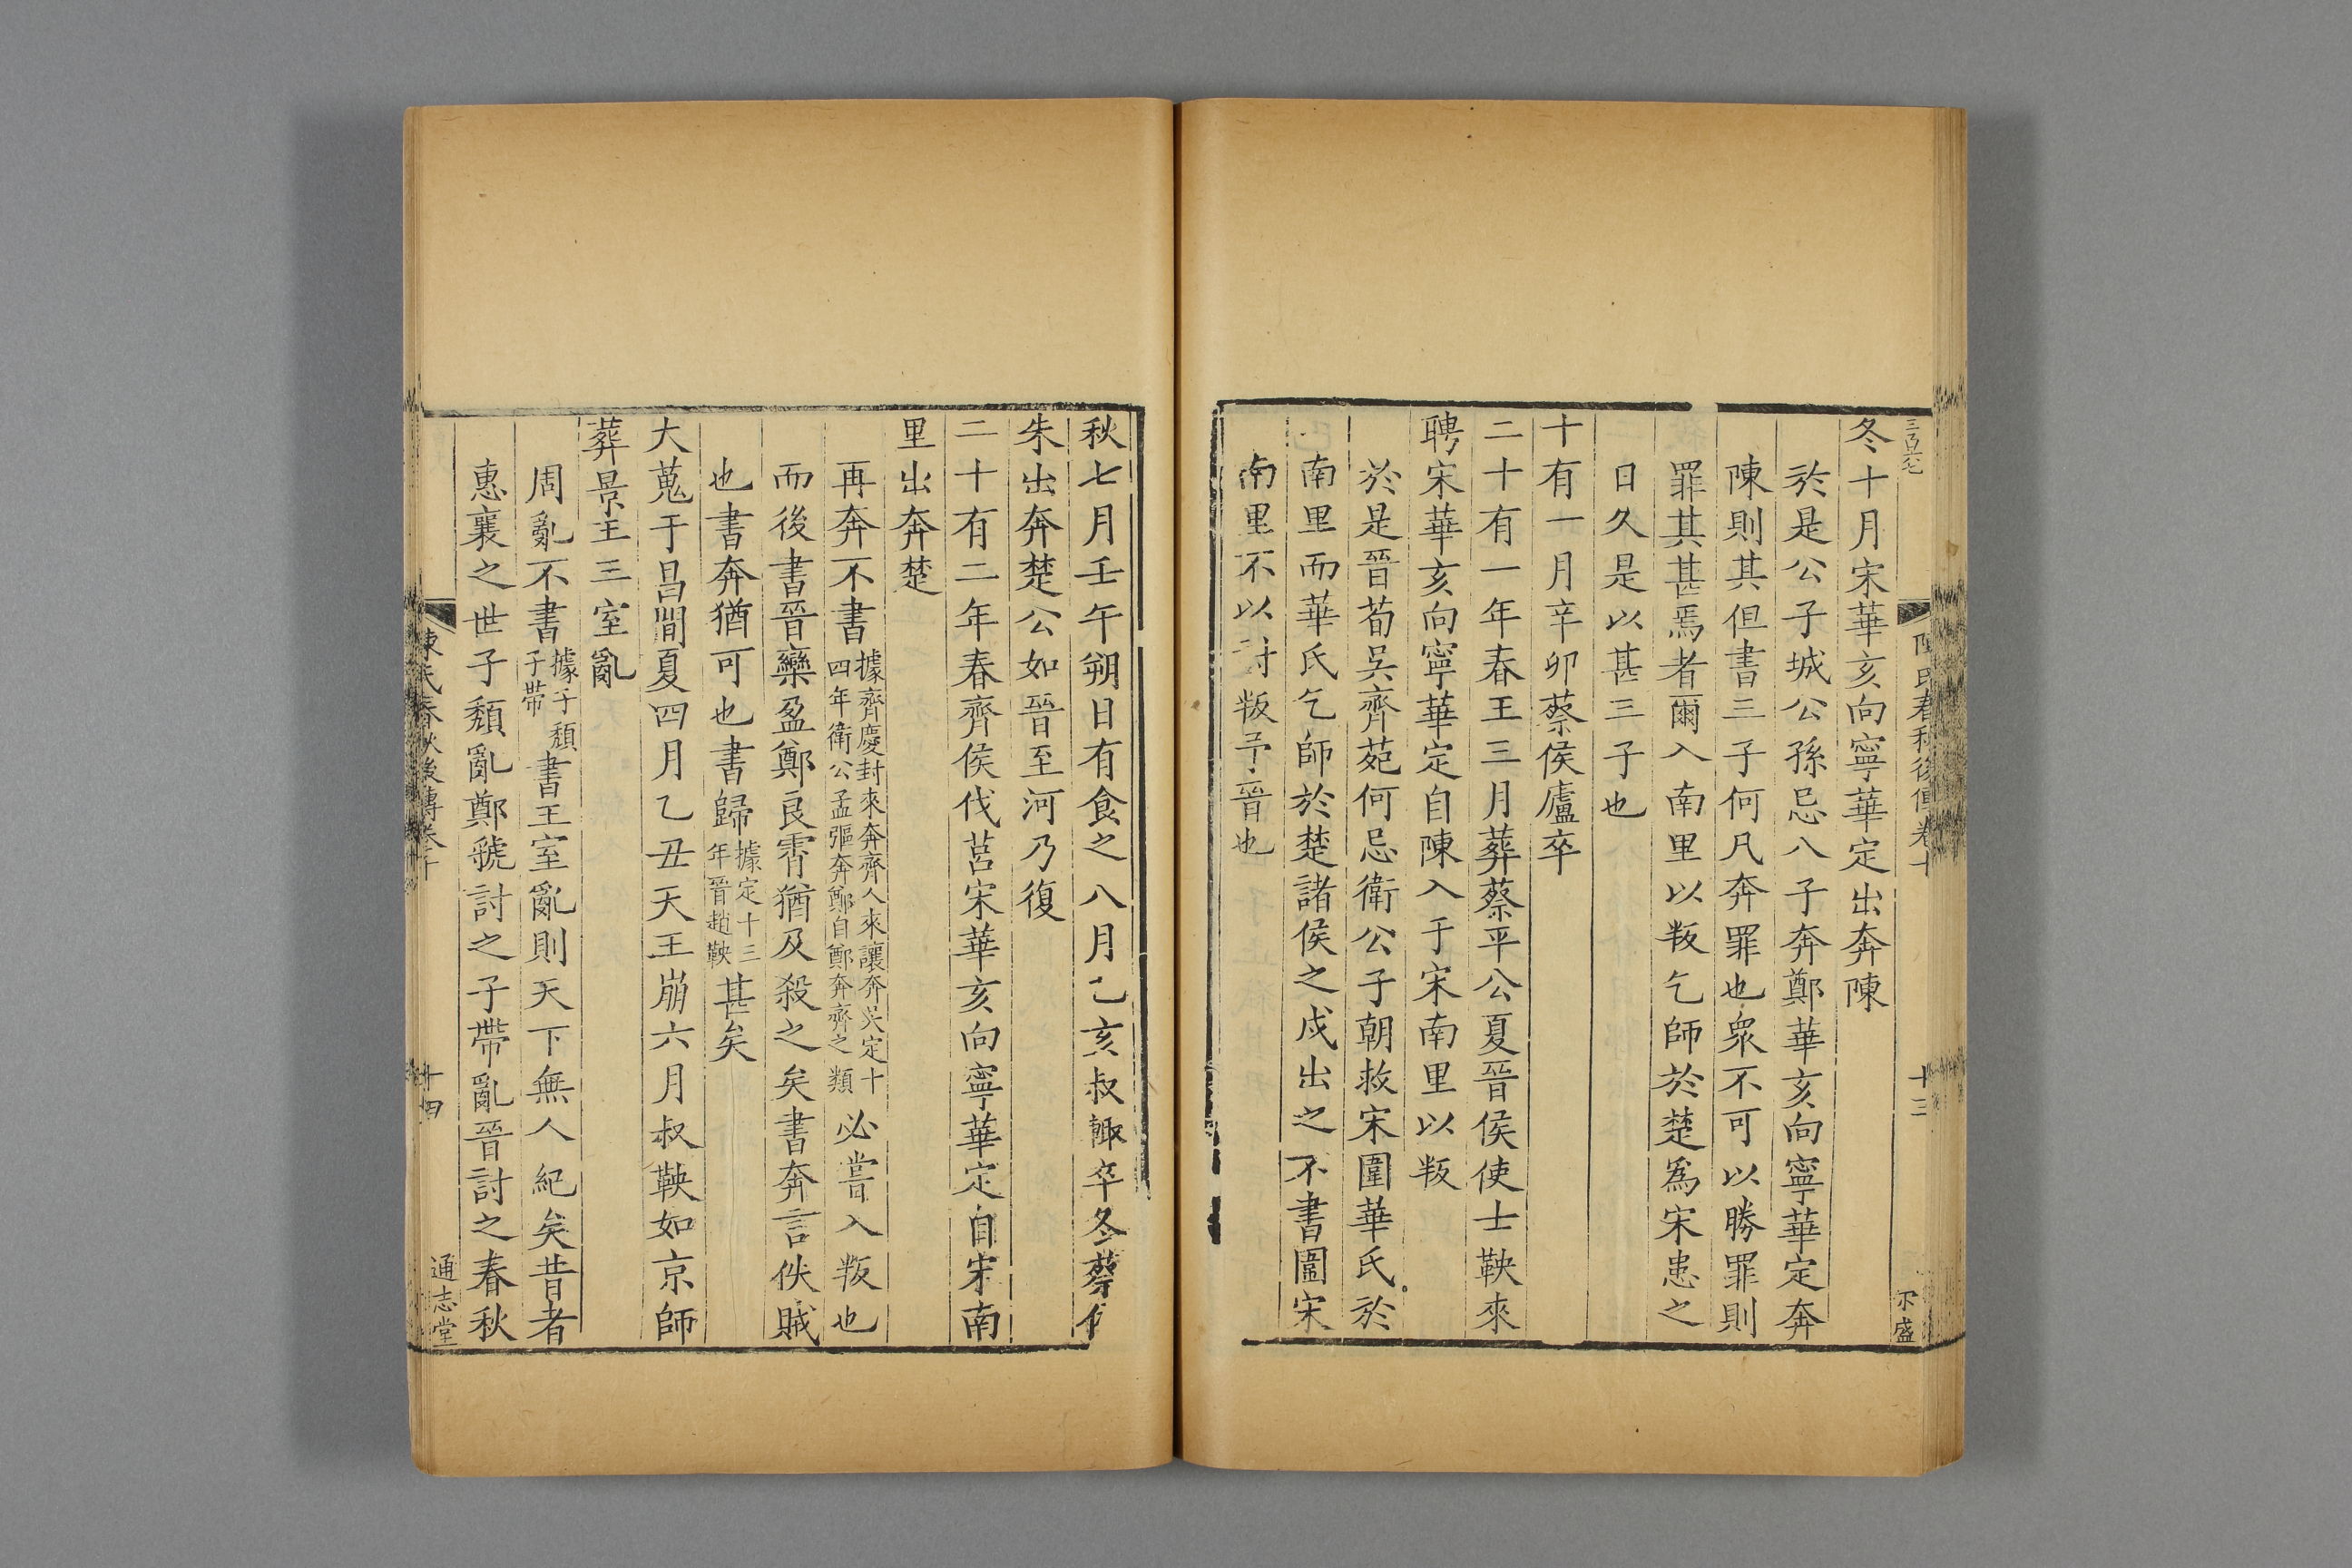 冬十月宋華亥向寧華定出奔陳
於是公子城公孫忌八子奔鄭華亥向寧華定奔
陳則其但書三子何凡奔罪也衆不可以勝罪則
罪其甚焉者爾入南里以叛乞師於楚爲宋患之
日久是以甚三子也
十有一月辛卯蔡侯廬卒
二十有一年春王三月葬蔡平公夏晉侯使士鞅來
聘宋華亥向寧華定自陳入于宋南里以叛
於是晉荀吳齊苑何忌衛公子朝救宋圍華氏於
南里而華氏乞師於楚諸侯之戍出之不書圍宋
南里不以討叛予晉也
秋七月壬午朔日有食之八月乙亥叔輙卒冬蔡侯
朱出奔楚公如晉至河乃復
二十有二年春齊侯伐莒宋華亥向寧華定自宋南
里出奔楚
再奔不書據齊慶封來奔齊人來讓奔吳定十四年衛公孟彄奔鄭自鄭奔齊之類必嘗入叛也
而後書晉欒盈鄭良霄猶及殺之矣書奔言佚賊
也書奔猶可也書歸據定十三年晉趙鞅甚矣
大蒐于昌間夏四月乙丑天王崩六月叔鞅如京師
葬景王王室亂
周亂不書據子頹子帶書王室亂則天下無人紀矣昔者
惠襄之世子頹亂鄭虢討之子帶亂晉討之春秋
陳氏春秋後傳卷十
十三
陳氏春秋後傳卷十
十四
通志堂